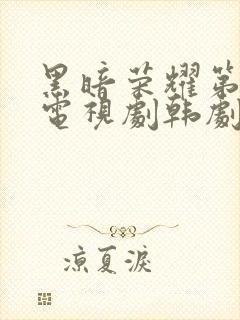 黑暗荣耀第
電視劇韩劇
凉夏淚